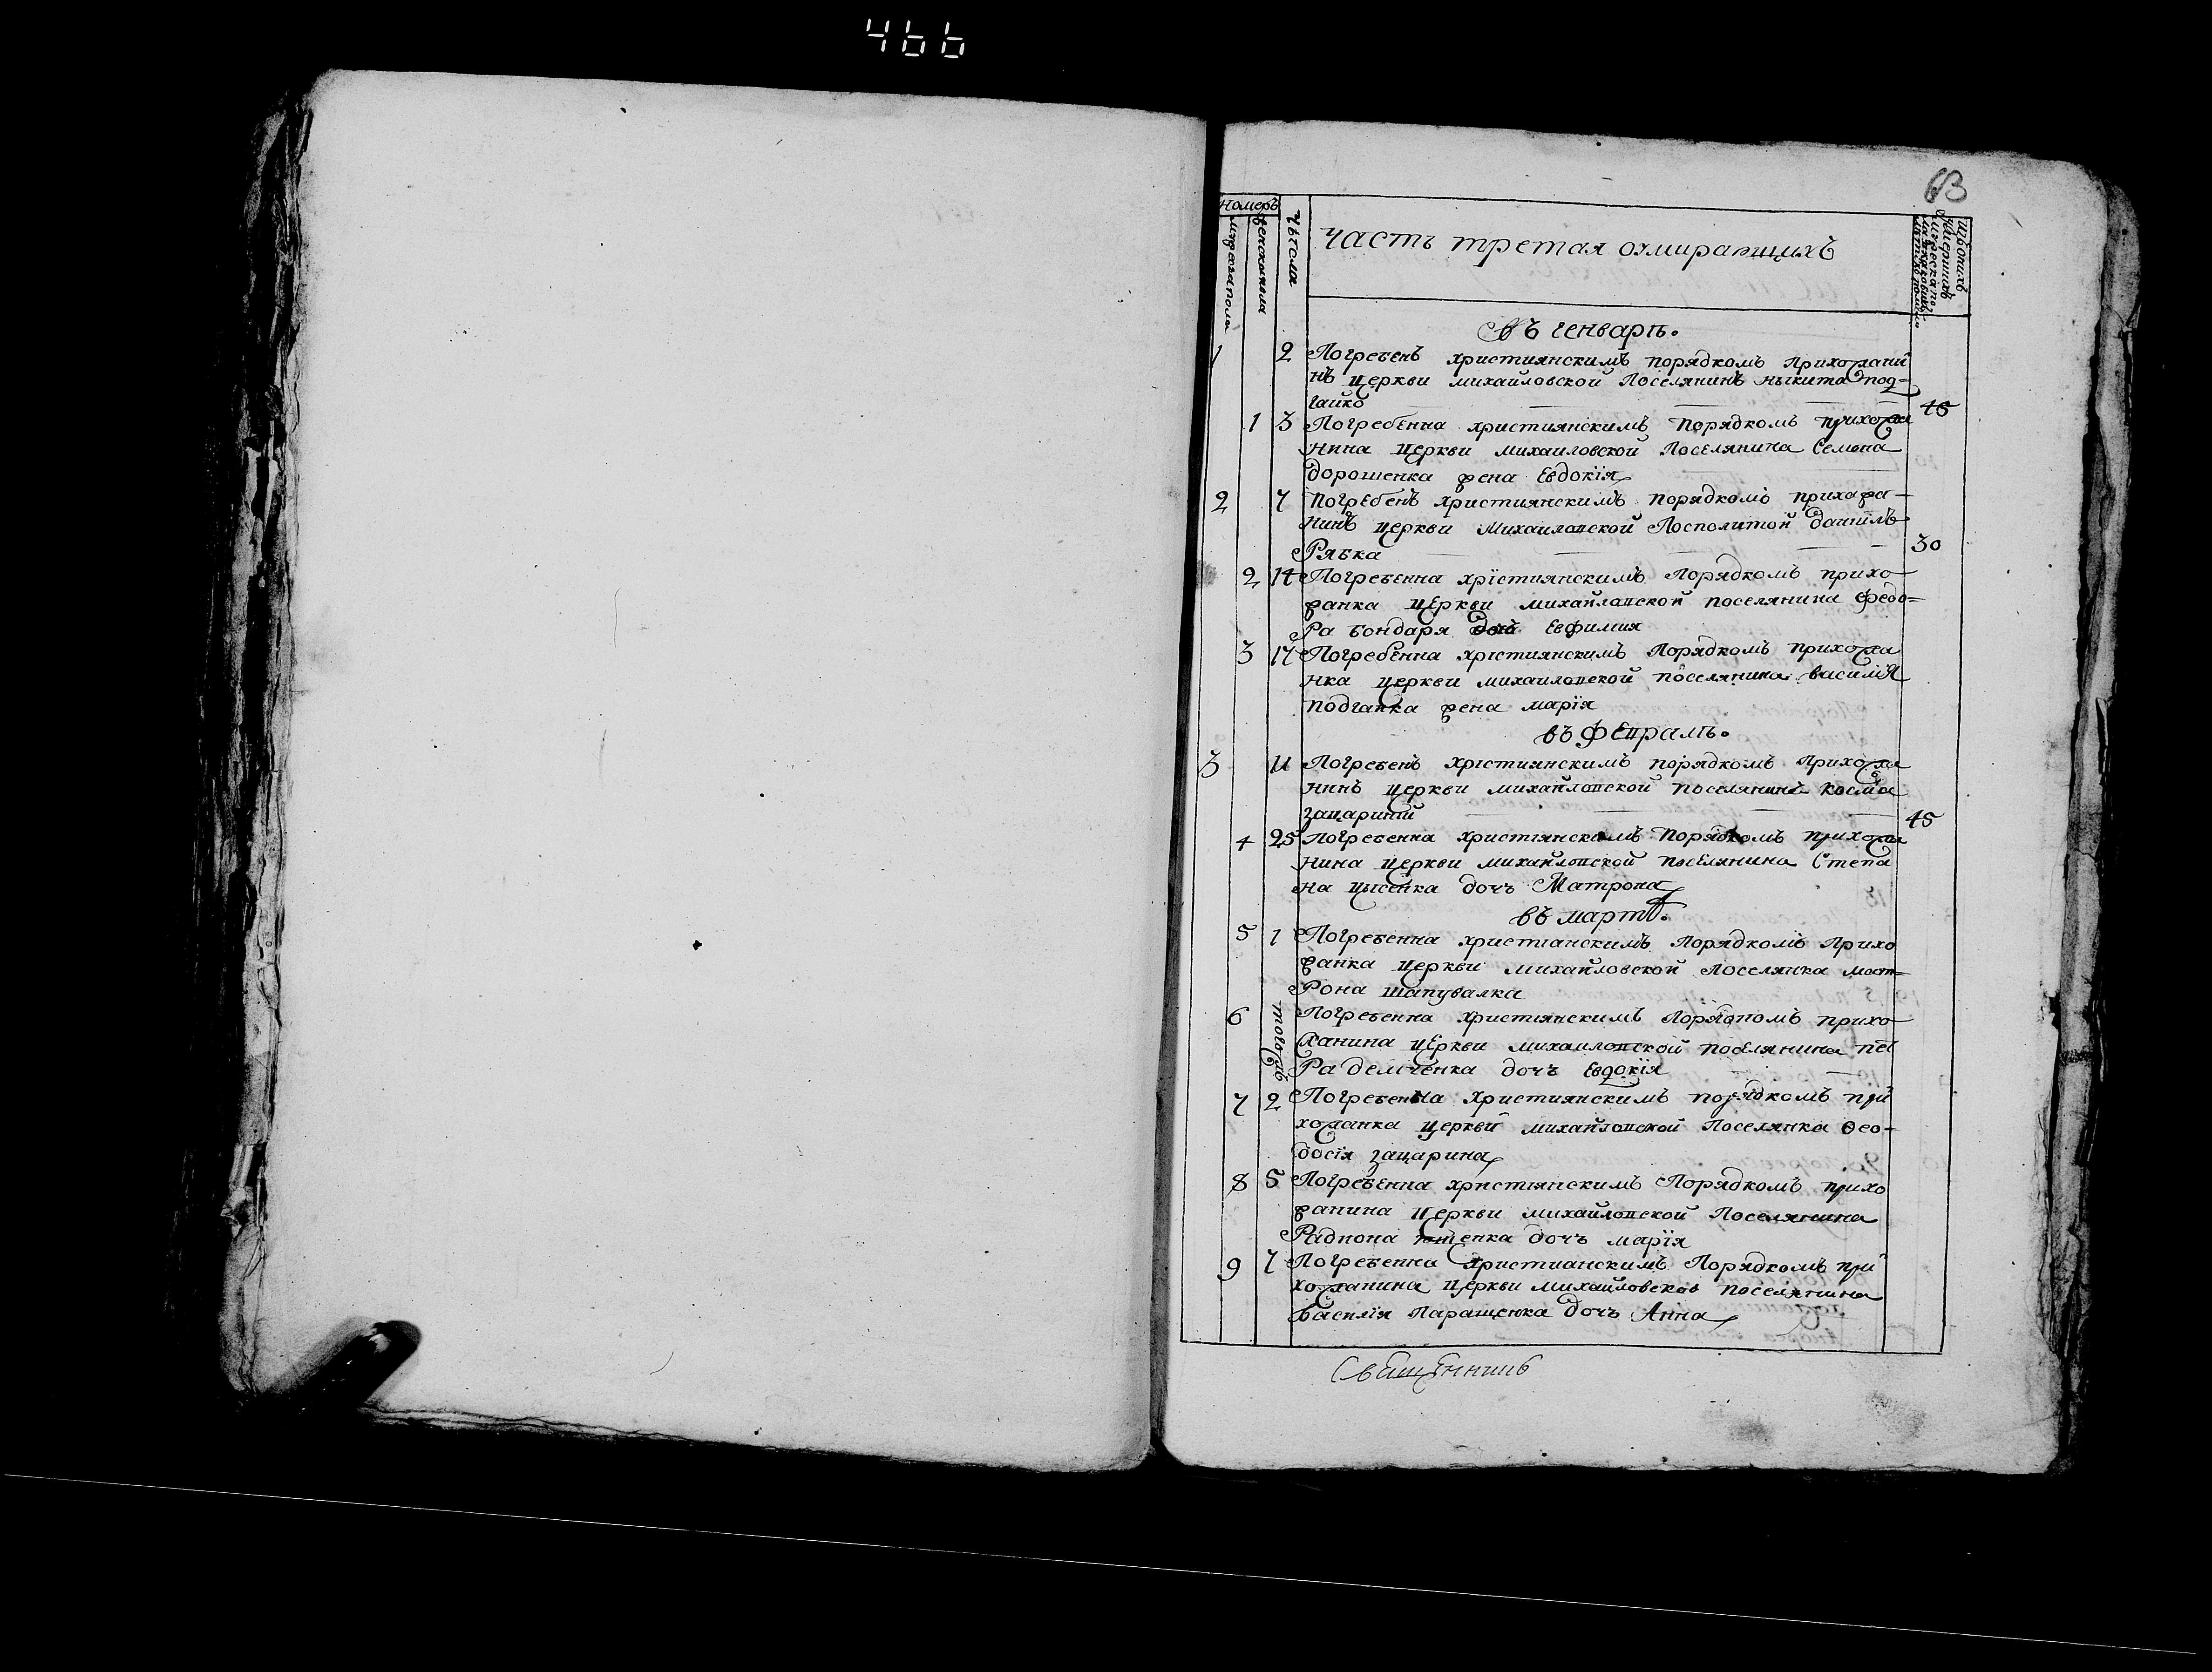 466
63
Номеръ
мужеска пола
женска пола
Числа
Часть третая оумирающихъ
въ генварѣ.
1 2 Погребенъ християнскимъ порядкомъ прихожани
нъ церкви михайловской Поселянинъ Никита под-
гайко 45
1 3 Погребенна християнскимъ порядкомъ прихожа
нина церкви михайловской Поселянина Семена
дорошенка жена Евдокїя
2 7 Погребенъ християнскимъ порядкомъ прихожа-
нинъ церкви Михайловской Посполитой данїилъ
Рябка 30
2 14 Погребенна християнскимъ Порядкомъ прихо
жанка церкви михайловской поселянина Федо-
ра бондаря Евфимия
3 17 Погребенна християнскимъ Порядкомъ прихожа
нка церкви михайловской поселянина василїя
подгайка жена марїя
въ февралѣ.
3 11 Погребенъ християнскимъ порядкомъ Прихожа
нинъ церкви михайловской поселянинъ косма
зацаринїй 45
4 25 Погребенна християнскимъ порядкомъ прихожа
нина церкви михайловской поселянина Степа
на цысенка дочъ Матрона
въ мартѣ.
5 1 Погребенна християнскимъ Порядкомъ Прихо
жанка церкви михайловской Поселянка мат-
рона шапувалка
6 тогожъ Погребенна християнскимъ Порядкомъ прихо
жанина церкви михайловской поселянина пет
ра демченка дочъ Евдокїя
7 2 Погребенна християнскимъ порядкомъ при
хожанка церкви михайловской Поселянка Ѳео-
досїя зацарина
8 5 Погребенна християнскимъ Порядкомъ прихо
жанина церкви михайловской Поселянина
Радиона дочъ марїя
9 7 Погребенна християнскимъ Порядкомъ при
хожанина церкви михайловской поселянина
Василїя Паращенка дочъ Анна
Священникъ